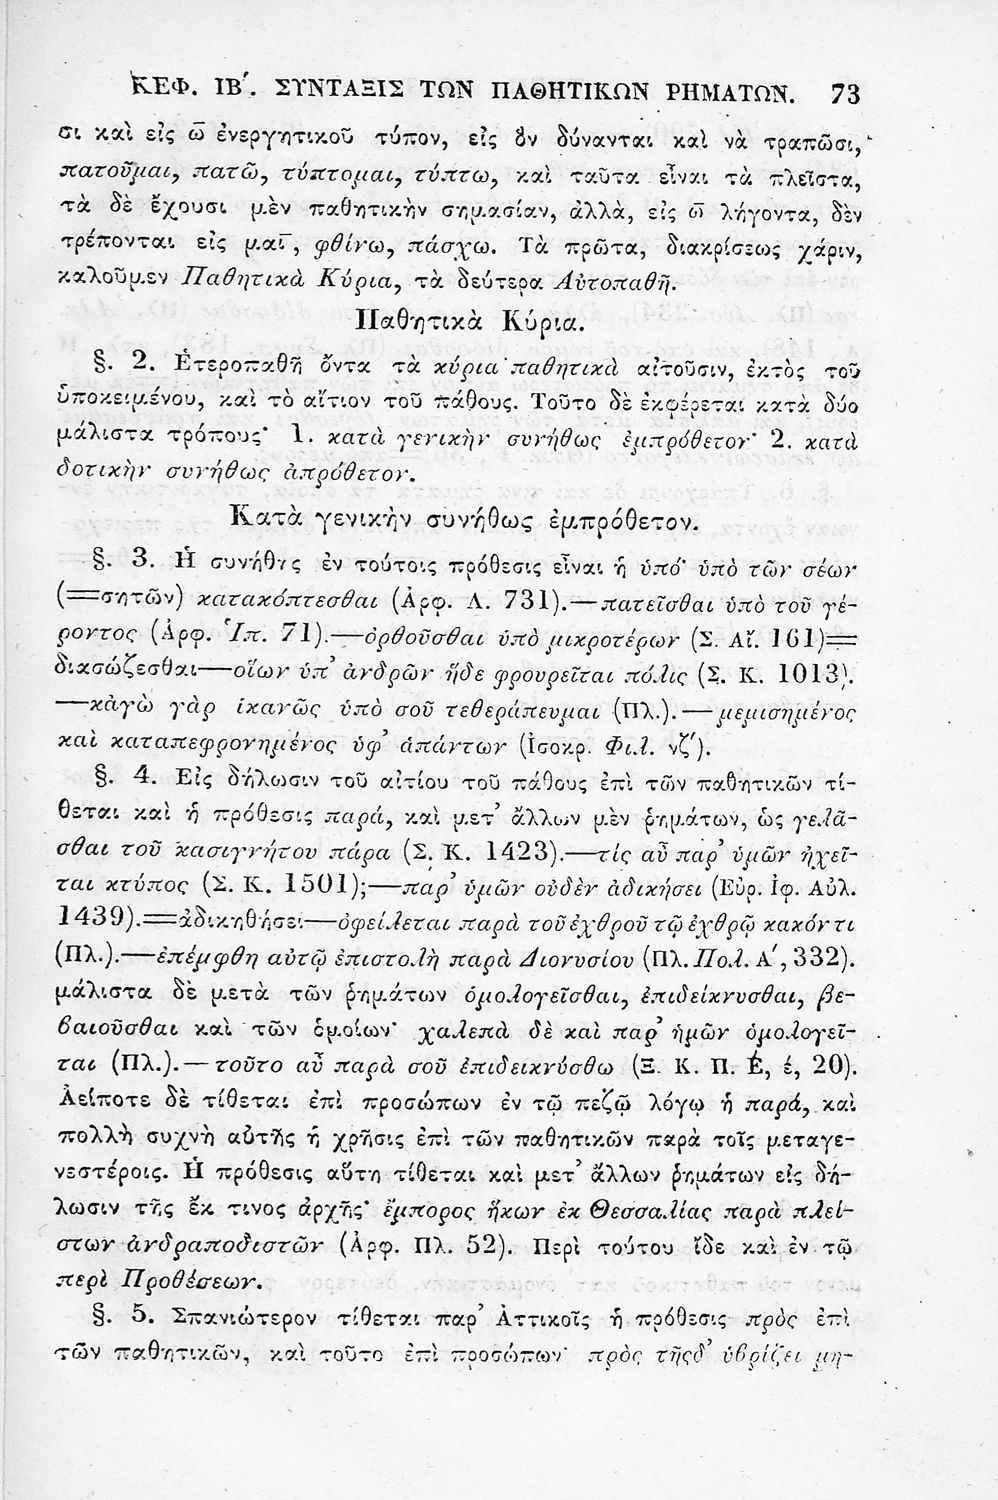 ΚΕΦ. ΙΒ΄. ΣΥΝΤΑΞΙΣ ΤΩΝ ΠΑΘΗΤΙΚΩΝ ΡΗΜΑΤΩΝ. 73
σι καὶ εἰς ω̄ ἐνεργητικοῦ τύπον, εἰς ὃν δύνανται καὶ νὰ τραπῶσι,
πατοῦμαι, πατῶ, τύπτομαι, τύπτω, καὶ ταῦτα εἶναι τὰ πλεῖστα,
τὰ δὲ ἔχουσι μὲν παθητικὴν σημασίαν, ἀλλὰ, εἰς ω̄ λήγοντα, δὲν
τρέπονται εἰς μαῑ, φθίνω, πάσχω. Τὰ πρῶτα, διακρίσεως χάριν,
καλοῦμεν Παθητικὰ Κύρια, τὰ δεύτερα Αὐτοπαθῆ.
Παθητικὰ Κύρια.
§. 2. Ἑτεροπαθῆ ὄντα τὰ κύρια παθητικὰ αἰτοῦσιν, ἐκτὸς τοῦ
ὑποκειμένου, καὶ τὸ αἴτιον τοῦ πάθους. Τοῦτο δὲ ἐκφέρεται κατὰ δύο
μάλιστα τρόπους· 1. κατὰ γενικὴν συνήθως ἐμπρόθετον· 2. κατὰ
δοτικὴν συνήθως ἀπρόθετον.
Κατὰ γενικὴν συνήθως ἐμπρόθετον.
§. 3. Ἡ συνήθης ἐν τούτοις πρόθεσις εἶναι ἡ ὑπό· ὑπὸ τῶν σέων
(=σητῶν) κατακόπτεσθαι (Ἀρφ. Λ. 731).—πατεῖσθαι ὑπὸ τοῦ γέ-
ροντος (Ἀρφ. Ἱπ. 71).—ὀρθοῦσθαι ὑπὸ μικροτέρων (Σ. Αἴ. 161)=
διασώζεσθαι—οἵων ὑπ᾽ ἀνδρῶν ἥδε φρουρεῖται πόλις (Σ. Κ. 1013).
—κἀγὼ γὰρ ἱκανῶς ὑπὸ σοῦ τεθεράπευμαι (Πλ.).—μεμισημένος
καὶ καταπεφρονημένος ὑφ᾽ ἁπάντων (Ἰσοκρ. Φιλ. νζ΄).
§. 4. Εἰς δήλωσιν τοῦ αἰτίου τοῦ πάθους ἐπὶ τῶν παθητικῶν τί-
θεται καὶ ἡ πρόθεσις παρά, καὶ μετ᾽ ἄλλων μὲν ῥημάτων, ὡς γελᾶ-
σθαι τοῦ κασιγνήτου πάρα (Σ. Κ. 1423).—τίς αὖ παρ᾽ ὑμῶν ἠχεῖ-
ται κτύπος (Σ. Κ. 1501);—παρ᾽ ὑμῶν οὐδὲν ἀδικήσει (Εὐρ. Ἰφ. Αὐλ.
1439).=ἀδικηθήσει—ὀφείλεται παρὰ τοῦ ἐχθροῦ τῷ ἐχθρῷ κακόν τι
(Πλ.).—ἐπέμφθη αὐτῷ ἐπιστολὴ παρὰ Διονυσίου (Πλ. Πολ. Α΄, 332).
μάλιστα δὲ μετὰ τῶν ῥημάτων ὁμολογεῖσθαι, ἐπιδείκνυσθαι, βε-
βαιοῦσθαι καὶ τῶν ὁμοίων· χαλεπὰ δὲ καὶ παρ᾽ ἡμῶν ὁμολογεῖ-
ται (Πλ.).—τοῦτο αὖ παρὰ σοῦ ἐπιδεικνύσθω (Ξ. Κ. Π. Ἐ, έ, 20).
Ἀείποτε δὲ τίθεται ἐπὶ προσώπων ἐν τῷ πεζῷ λόγῳ ἡ παρά, καὶ
πολλὴ συχνὴ αὐτῆς ἡ χρῆσις ἐπὶ τῶν παθητικῶν παρὰ τοῖς μεταγε-
νεστέροις. Ἡ πρόθεσις αὕτη τίθεται καὶ μετ᾽ ἄλλων ῥημάτων εἰς δή-
λωσιν τῆς ἔκ τινος ἀρχῆς· ἔμπορος ἥκων ἐκ Θεσσαλίας παρὰ πλεί-
στων ἀνδραποδιστῶν (Ἀρφ. Πλ. 52). Περὶ τούτου ἴδε καὶ ἐν τῷ
περὶ Προθέσεων.
§. 5. Σπανιώτερον τίθεται παρ᾽ Ἀττικοῖς ἡ πρόθεσις πρὸς ἐπὶ
τῶν παθητικῶν, καὶ τοῦτο ἐπὶ προσώπων· πρὸς τῆςδ᾽ ὑβρίζει μη-